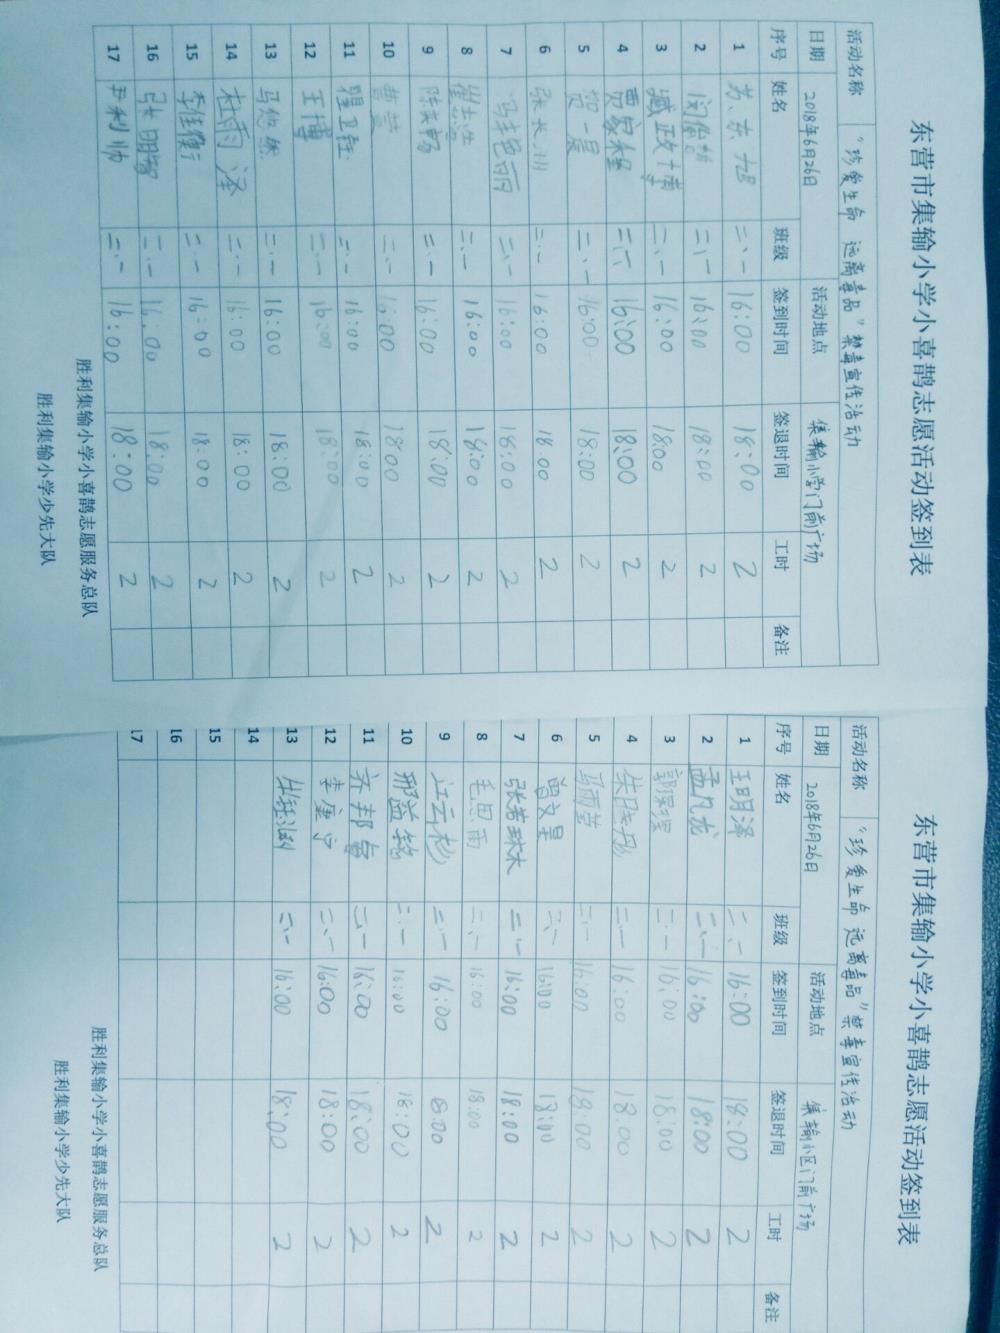 东营市集输小学小喜鹊志愿活动签到表
活动名称 "珍爱生命 远离毒品"禁毒宣传活动
日期 2018年6月26日 活动地点 集输小学门前广场
序号 姓名 班级 签到时间 签退时间 工时 备注
1 苏东旭 二、一 16:00 18:00 2
2 闵俊哲 二、一 16:00 18:00 2
3 臧政楠 二、一 16:00 18:00 2
4 贾家程 二、一 16:00 18:00 2
5 贺一晨 二、一 16:00 18:00 2
6 张长川 二、一 16:00 18:00 2
7 冯艳丽 二、一 16:00 18:00 2
8 二、一 16:00 18:00 2
9 二、一 16:00 18:00 2
10 二、一 16:00 18:00 2
11 二、一 16:00 18:00 2
12 王博 二、一 16:00 18:00 2
13 马悠然 二、一 16:00 18:00 2
14 杜雨泽 二、一 16:00 18:00 2
15 李佳 二、一 16:00 18:00 2
16 张明智 二、一 16:00 18:00 2
17 尹利帅 二、一 16:00 18:00 2
胜利集输小学小喜鹊志愿服务总队
胜利集输小学少先大队
东营市集输小学小喜鹊志愿活动签到表
活动名称 "珍爱生命 远离毒品"禁毒宣传活动
日期 2018年6月26日 活动地点 集输小区门前广场
序号 姓名 班级 签到时间 签退时间 工时 备注
1 王明泽 二、一 16:00 18:00 2
2 孟凡龙 二、一 16:00 18:00 2
3 二、一 16:00 18:00 2
4 朱晓彤 二、一 16:00 18:00 2
5 马雨萱 二、一 16:00 18:00 2
6 曾文星 二、一 16:00 18:00 2
7 张若琳 二、一 16:00 18:00 2
8 毛思雨 二、一 16:00 18:00 2
9 江云杉 二、一 16:00 8:00 2
10 邢益铭 二、一 16:00 18:00 2
11 齐邦睿 二、一 16:00 18:00 2
12 李康宁 二、一 16:00 18:00 2
13 二、一 16:00 18:00 2
14
15
16
17
胜利集输小学小喜鹊志愿服务总队
胜利集输小学少先大队